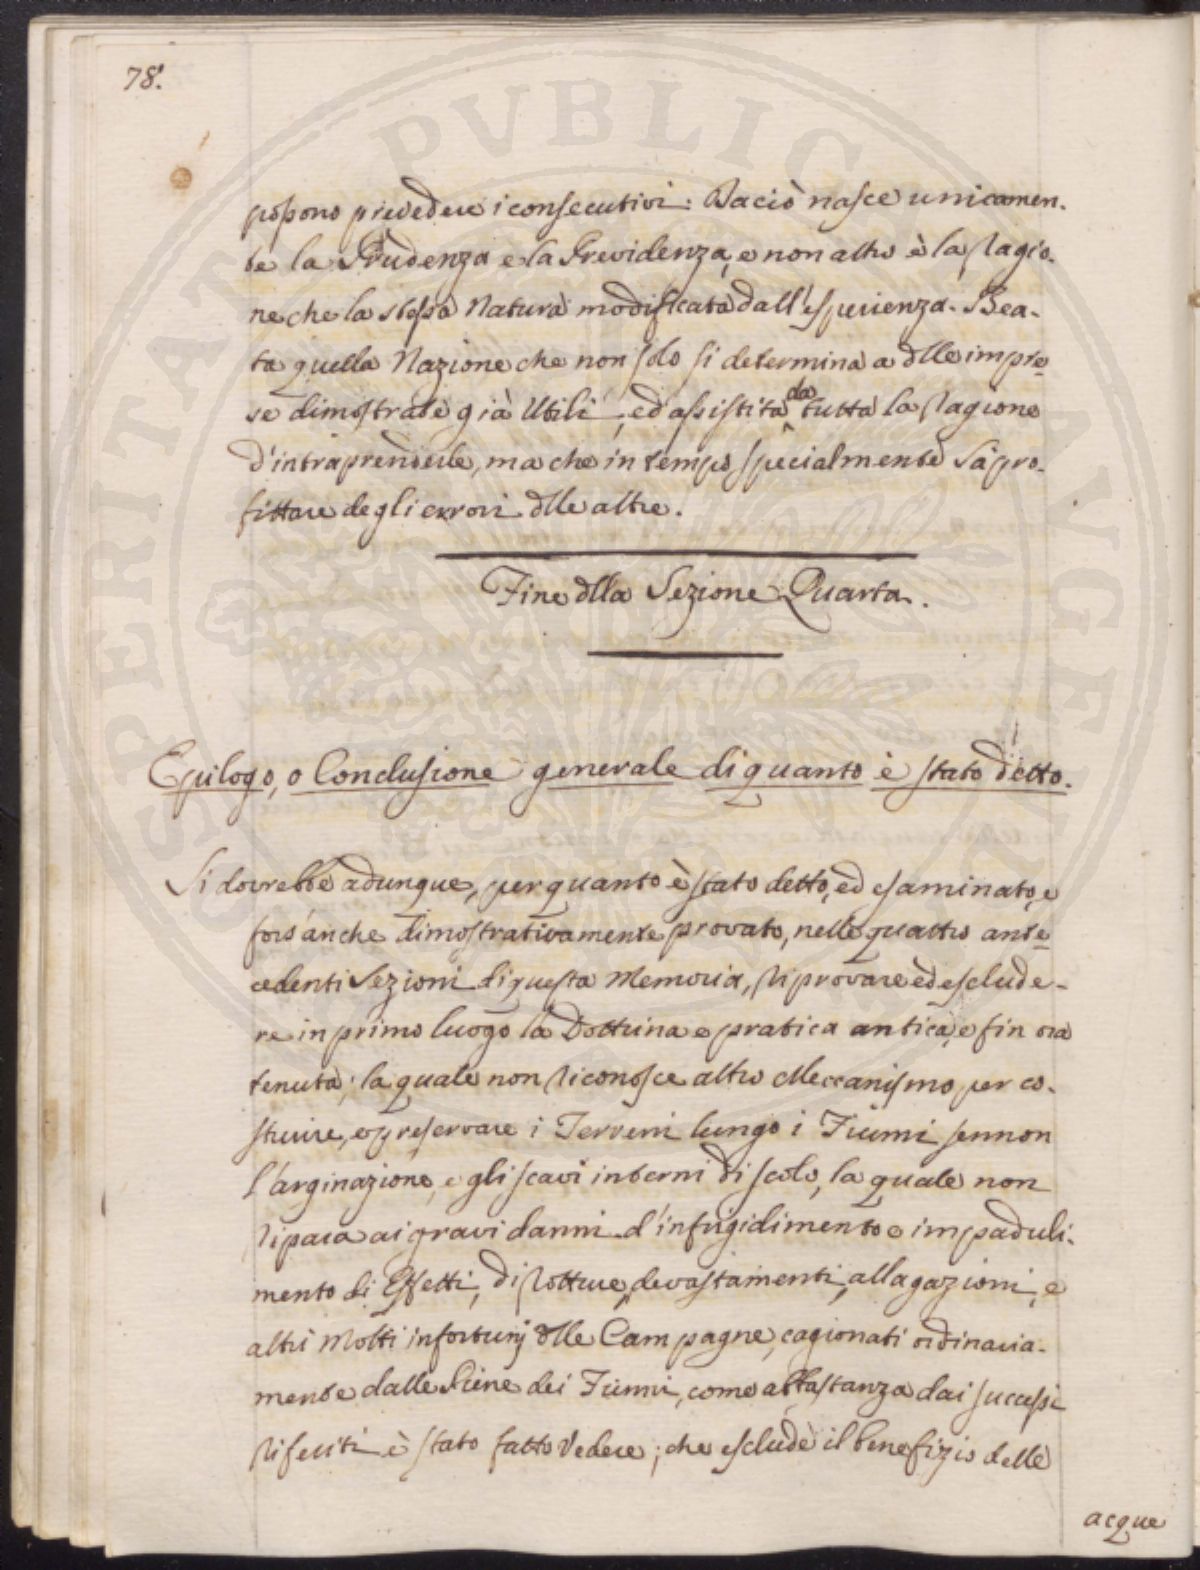 78.
possono prevedere i consecutivi: Da ciò nasce unicamen-
te la Prudenza e la Previdenza, e non altro è la ragio-
ne che la stessa Natura modificata dall'esperienza. Bea-
ta quella Nazione che non solo si determina a dlle impre
se dimostrate già Utili, ed assistita da tutta la ragione
d'intraprenderle, ma che in tempo specialmente sà pro-
fittare degli errori dlle altre.
Fine dlla Sezione Quarta.
Epilogo, o Conclusione generale di quanto è stato detto.
Si dovrebbe adunque, per quanto è stato detto, ed esaminato, e
fors'anche dimostrativamente provato, nelle quattro ante
cedenti Sezioni di questa Memoria, riprovare ed esclude-
re in primo luogo la Dottrina e pratica antica, e fin ora
tenuta; la quale non riconosce altro Meccanismo per co-
struire, e preservare i Terreni lungo i Fiumi sennon
l'arginazione, e gli scavi interni di scolo, la quale non
ripara ai gravi danni d'infrigidimento e impaduli-
mento di Effetti, di rotture, devastamenti, allagazioni, e
altri Molti infortunj dlle Campagne, cagionati ordinaria-
mente dalle Piene dei Fiumi, come abbastanza dai successi
riferiti è stato fatto Vedere; che esclude il benefizio delle
acque
SPERITAT PVBLIC AVGE